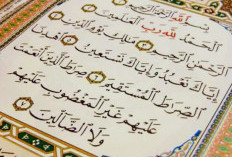 بِسْمِ اللَّهِ الرَّحْمَٰنِ الرَّحِيمِ
الْحَمْدُ لِلَّهِ رَبِّ الْعَالَمِينَ
الرَّحْمَٰنِ الرَّحِيمِ ٣ مَالِكِ يَوْمِ الدِّينِ
إِيَّاكَ نَعْبُدُ وَإِيَّاكَ نَسْتَعِينُ ٥ اهْدِنَا
الصِّرَاطَ الْمُسْتَقِيمَ ٦ صِرَاطَ الَّذِينَ أَنْعَمْتَ
عَلَيْهِمْ غَيْرِ الْمَغْضُوبِ عَلَيْهِمْ
وَلَا الضَّالِّينَ ٧